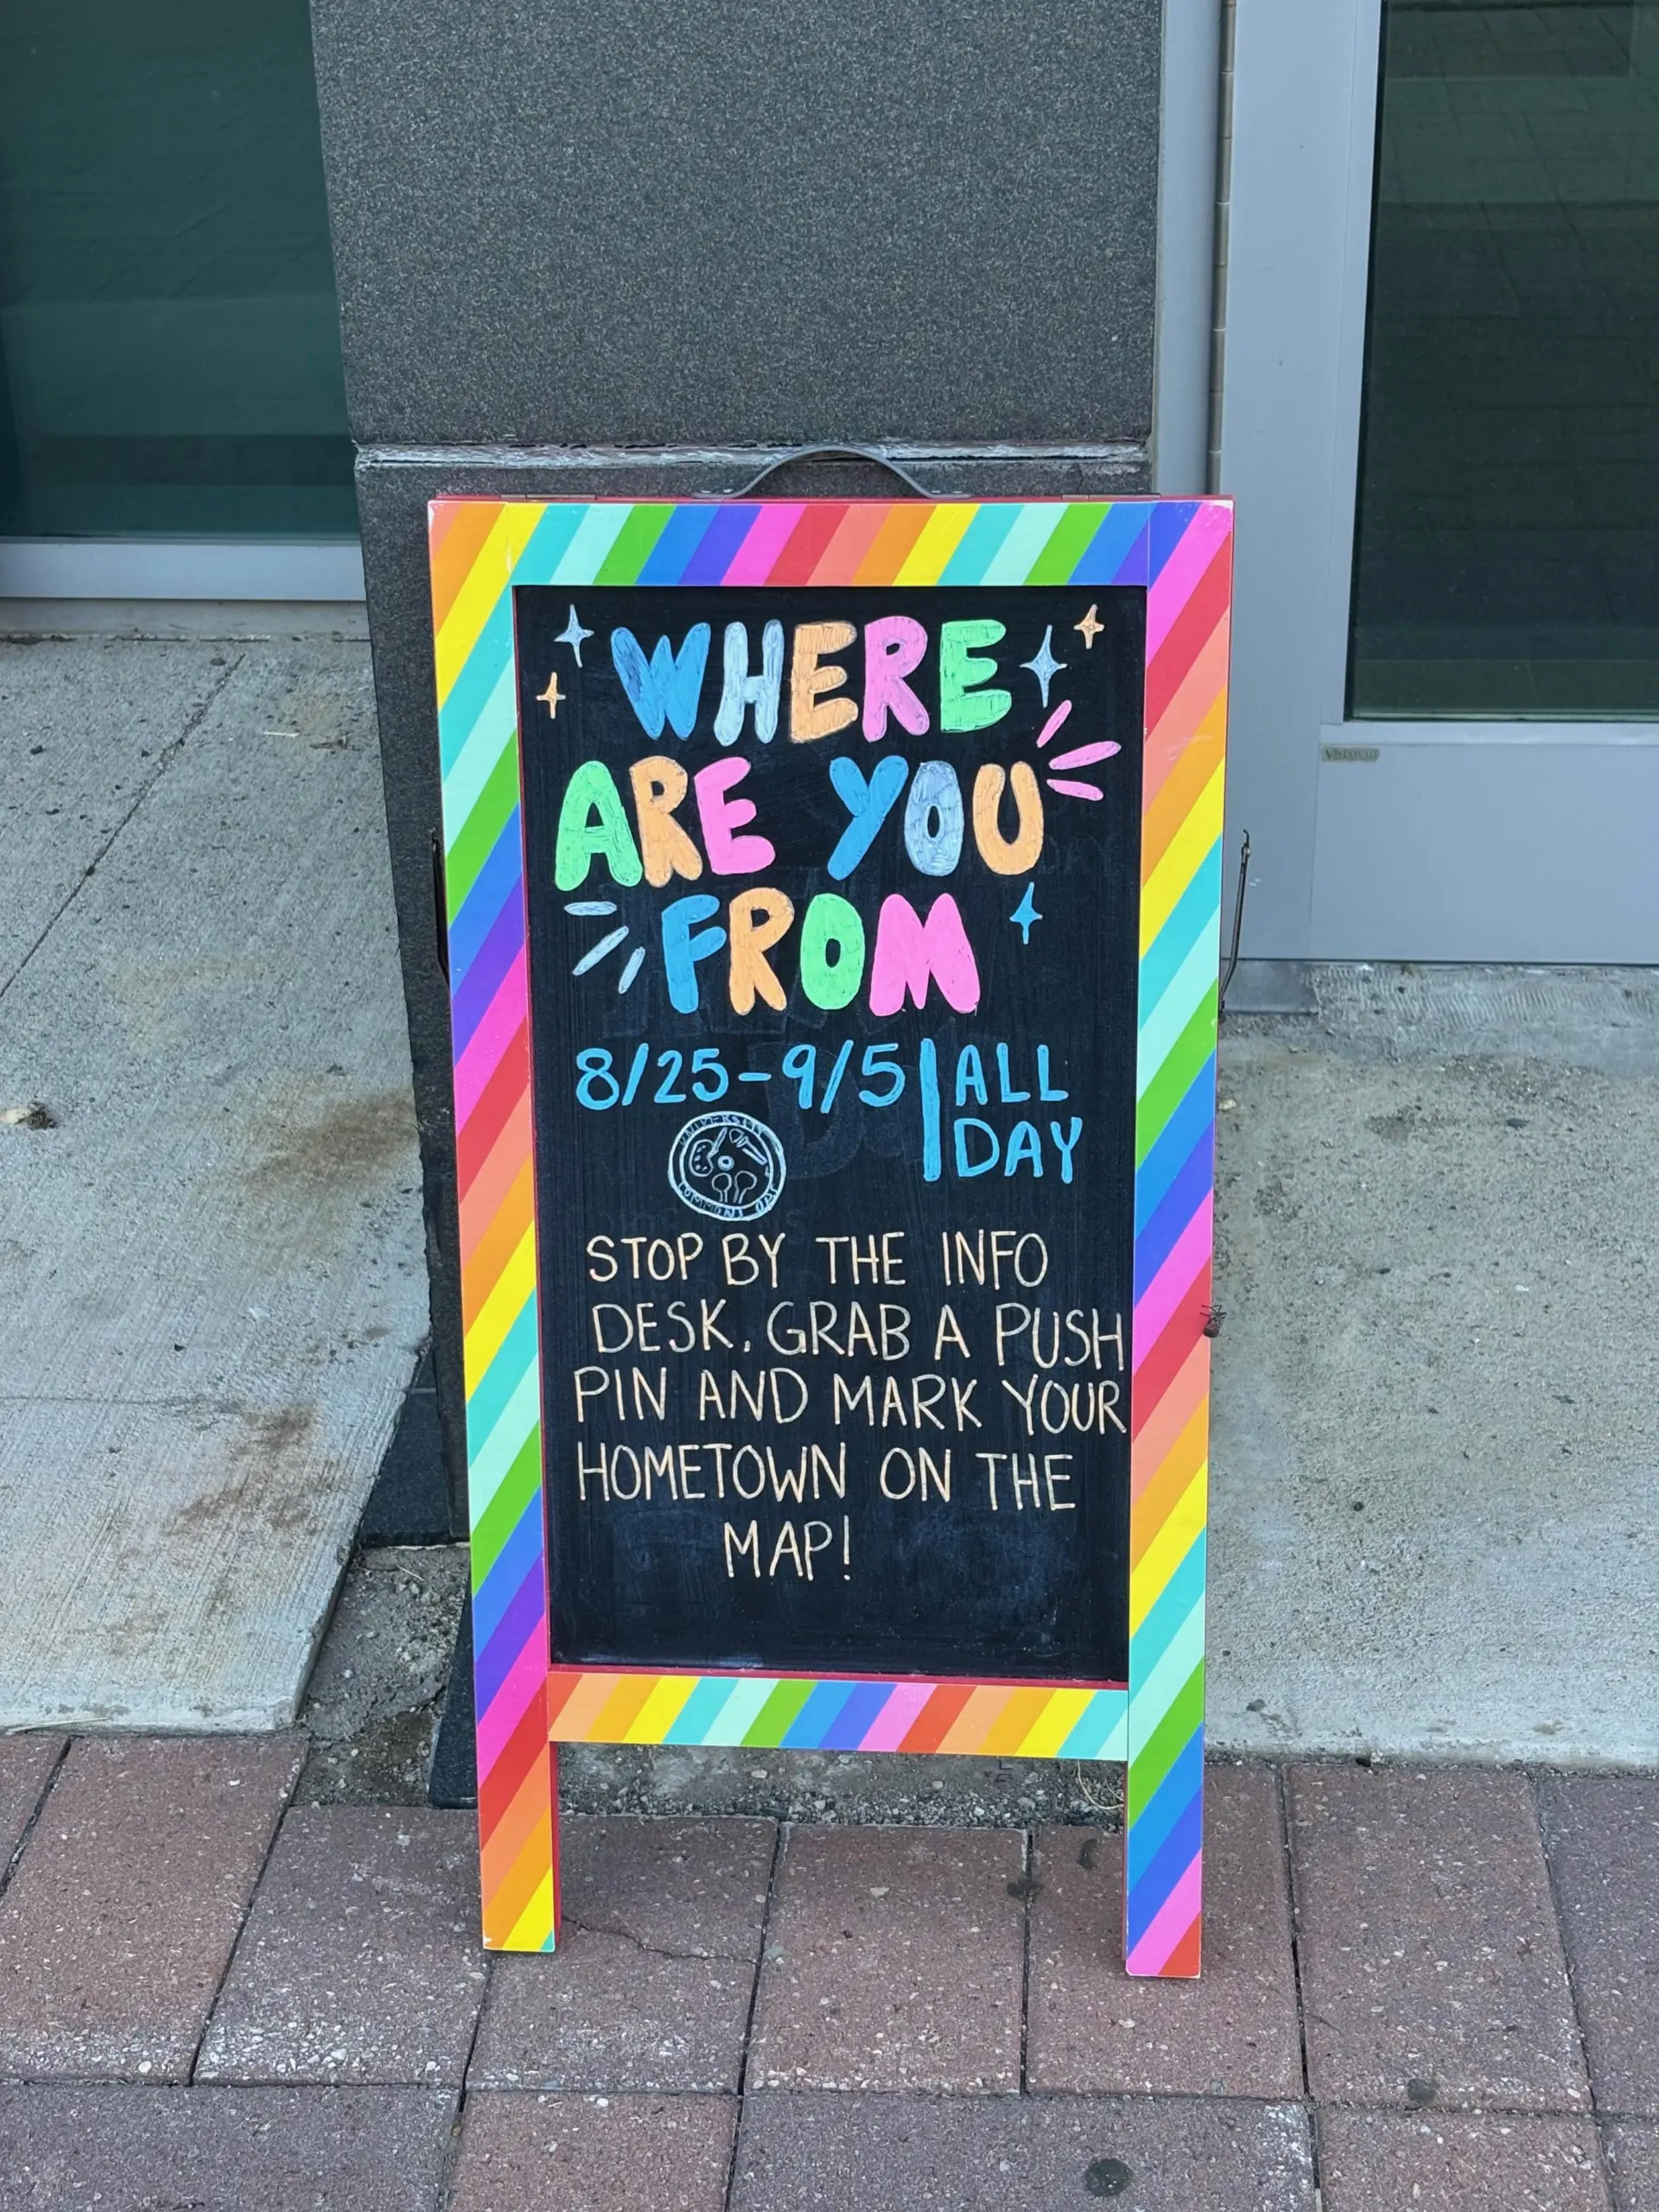 WHERE
ARE YOU
FROM
8/25-9/5 | ALL
DAY
STOP BY THE INFO
DESK, GRAB A PUSH
PIN AND MARK YOUR
HOMETOWN ON THE
MAP!